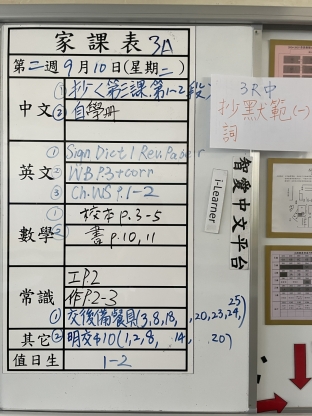 家課表 3A
第二週 9月10日(星期二)
中文
① 抄〈第三課.第1-2段〉
② 自學冊
3R中
抄默範(一)
詞
英文
① Sign Dict 1 Rev. Paper
② WB P.3+corr
③ Ch.WS P.1-2
數學
① 校本 P.3-5
② 書 P.10,11
智愛中文平台
i-Learner
常識
工P.2
作P.2-3
① 交後備餐具(3,8,18, ,20,23,24,
25)
其它
② 明交$10(1,2,8, 14, 20)
值日生
1-2